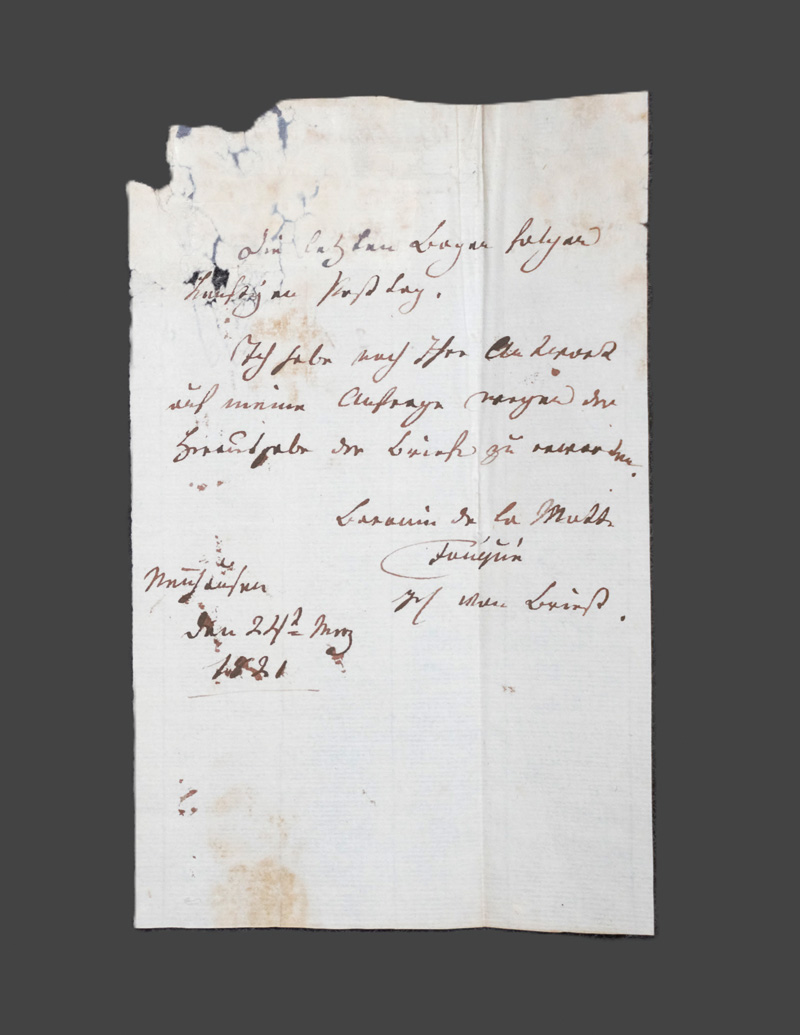 Die letzten Bogen folgen
künftigen Posttag.
Ich habe noch Ihre Antwort
auf meine Anfrage wegen der
Herausgabe der Briefe zu erwarten.
Baronin de la Motte
Fouqué
geb von Briest.
Neuhausen
den 24t März
1821